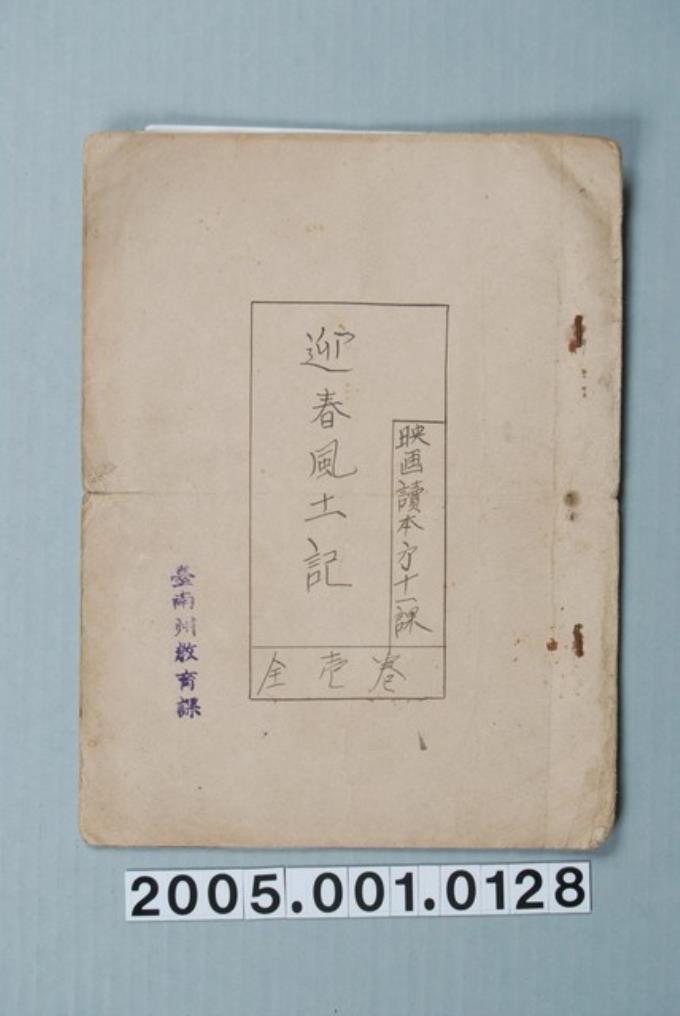 映画讀本㐧十一課
迎春風土記
全壱巻
臺南州教育課
2005.001.0128